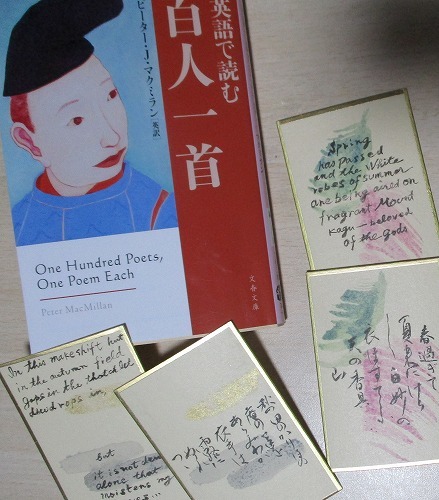 英語で読む
百人一首
ピーター・J・マクミラン 英訳
One Hundred Poets,
One Poem Each
Peter MacMillan
文春文庫
Spring
has passed
and the White
robes of summer
are being aired on
fragrant Mount
Kagu—beloved
of the gods
春過ぎて
夏来にけらし 白妙の
衣ほすてふ
天の香具
山
In this makeshift hut
in the autumn field
gaps in the thatch let
dewdrops in,
but
it is not dew
alone that
moistens my
秋の田の
わが衣手は